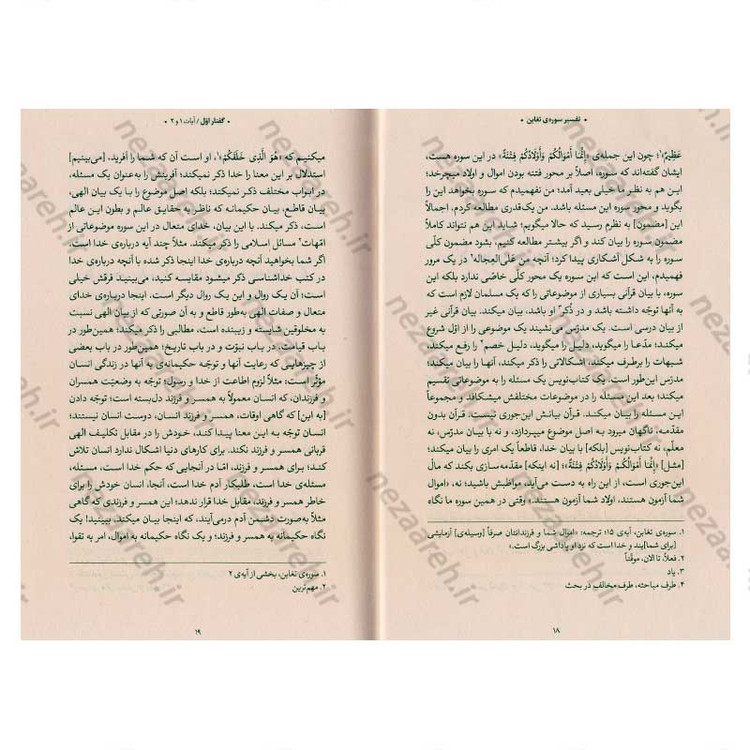 • تفسیر سوره‌ی تغابن •
عَظیمٌ»¹؛ چون این جمله‌ی «إنَّمٰا أَموٰالُکُم وَ أَولٰادُکُم فِتنَةٌ» در این سوره هست،
ایشان گفته‌اند که سوره، اصلاً بر محور فتنه بودن اموال و اولاد میچرخد؛
این هم به نظر ما خیلی بعید آمد؛ من نفهمیدم که سوره بخواهد این را
بگوید و محور سوره این مسئله باشد. من یک‌قدری مطالعه کردم، اجمالاً
این [مضمون] به نظرم رسید که حالا میگویم؛ شاید این هم نتواند کاملاً
مضمون سوره را بیان کند و اگر بیشتر مطالعه کنیم، بشود مضمون کلّی
سوره را به شکل آشکاری پیدا کرد؛ آنچه من علی‌العجاله² در یک مرور
فهمیدم، این است که این سوره یک محور کلّی خاصّی ندارد بلکه این
سوره، با بیان قرآنی بسیاری از موضوعاتی را که یک مسلمان لازم است که
به آنها توجّه داشته باشد و در ذُکر³ او باشد، بیان میکند. بیان قرآنی غیر
از بیان درسی است. یک مدرّس می‌نشیند یک موضوعی را از اوّل شروع
میکند؛ مدّعا را میگوید، دلیل را میگوید، دلیل خصم⁴ را رفع میکند،
شبهات را برطرف میکند، اشکالاتی را ذکر میکند، آنها را بیان میکند؛
مدرّس این‌طور است. یک کتاب‌نویس یک مسئله را به موضوعاتی تقسیم
میکند؛ بعد این مسئله را در موضوعات مختلفش میشکافد و مجموعاً
این مسئله را بیان میکند. قرآن بیانش این‌جوری نیست. قرآن بدون
مقدّمه، ناگهان میرود به اصل موضوع میپردازد، و نه با بیان مدرّس، نه
معلّم، نه کتاب‌نویس [بلکه] با بیان خدا، قاطعاً یک امری را بیان میکند؛
[مثل] «إنَّمٰا أَموٰالُکُم وَ أَولٰادُکُم فِتنَةٌ»؛ [نه اینکه] مقدّمه‌سازی بکند که مال
این‌جوری است، از این راه به دست می‌آید، مواظبش باشید؛ نه، اموال
شما آزمون هستند، اولاد شما آزمون هستند. وقتی در همین سوره ما نگاه
۱. سوره‌ی تغابن، آیه‌ی ۱۵؛ ترجمه: «اموال شما و فرزندانتان صرفاً [وسیله‌ی] آزمایشی
[برای شما]یند و خدا است که نزد او پاداشی بزرگ است.»
۲. فعلاً، تا الان، موقّتاً
۳. یاد
۴. طرف مباحثه، طرف مخالف در بحث
۱۸
• گفتار اوّل / آیات ۱ و ۲ •
میکنیم که «هُوَ الَّذی خَلَقَکُم»¹، او است آن که شما را آفرید، [می‌بینیم]
استدلال بر این معنا را خدا ذکر نمیکند؛ آفرینش را به‌عنوان یک مسئله،
در ابواب مختلف ذکر نمیکند؛ بلکه اصل موضوع را با یک بیان الهی،
بیان قاطع، بیان حکیمانه که ناظر به حقایق عالم و بطون این عالم
است، ذکر میکند. با این بیان، خدای متعال در این سوره موضوعاتی از
امّهات² مسائل اسلامی را ذکر میکند. مثلاً چند آیه درباره‌ی خدا است.
اگر شما بخواهید آنچه درباره‌ی خدا اینجا ذکر شده با آنچه درباره‌ی خدا
در کتب خداشناسی ذکر میشود مقایسه کنید، می‌بینید فرقش خیلی
است؛ آن یک روال و این یک روال دیگر است. اینجا درباره‌ی خدای
متعال و صفات الهی به‌طور قاطع و به آن صورتی که از بیان الهی نسبت
به مخلوقین شایسته و زیبنده است، مطالبی را ذکر میکند؛ همین‌طور در
باب قیامت، در باب نبوّت و در باب تاریخ؛ همین‌طور در باب بعضی
از چیزهایی که رعایت آنها و توجّه حکیمانه‌ی به آنها در زندگی انسان
مؤثّر است؛ مثلاً لزوم اطاعت از خدا و رسول؛ توجّه به وضعیّت همسران
و فرزندان، که انسان معمولاً به همسر و فرزند دل‌بسته است؛ توجّه دادن
[به این] که گاهی اوقات، همسر و فرزند انسان، دوست انسان نیستند؛
انسان توجّه به این معنا پیدا کند، خودش را در مقابل تکلیف الهی
قربانی همسر و فرزند نکند. برای کارهای دنیا اشکال ندارد انسان تلاش
کند؛ برای همسر و فرزند، امّا در آنجایی که حکم خدا است، مسئله،
مسئله‌ی خدا است، طلبکار آدم خدا است، آنجا انسان خودش را برای
خاطر همسر و فرزند، مقابل خدا قرار ندهد؛ این همسر و فرزندی که گاهی
مثلاً به‌صورت دشمن آدم درمی‌آیند، که اینجا بیان میکند. ببینید! یک
نگاه حکیمانه به همسر و فرزند؛ و یک نگاه حکیمانه به اموال، امر به تقوا،
۱. سوره‌ی تغابن، بخشی از آیه‌ی ۲
۲. مهم‌ترین
۱۹
nezaareh.ir